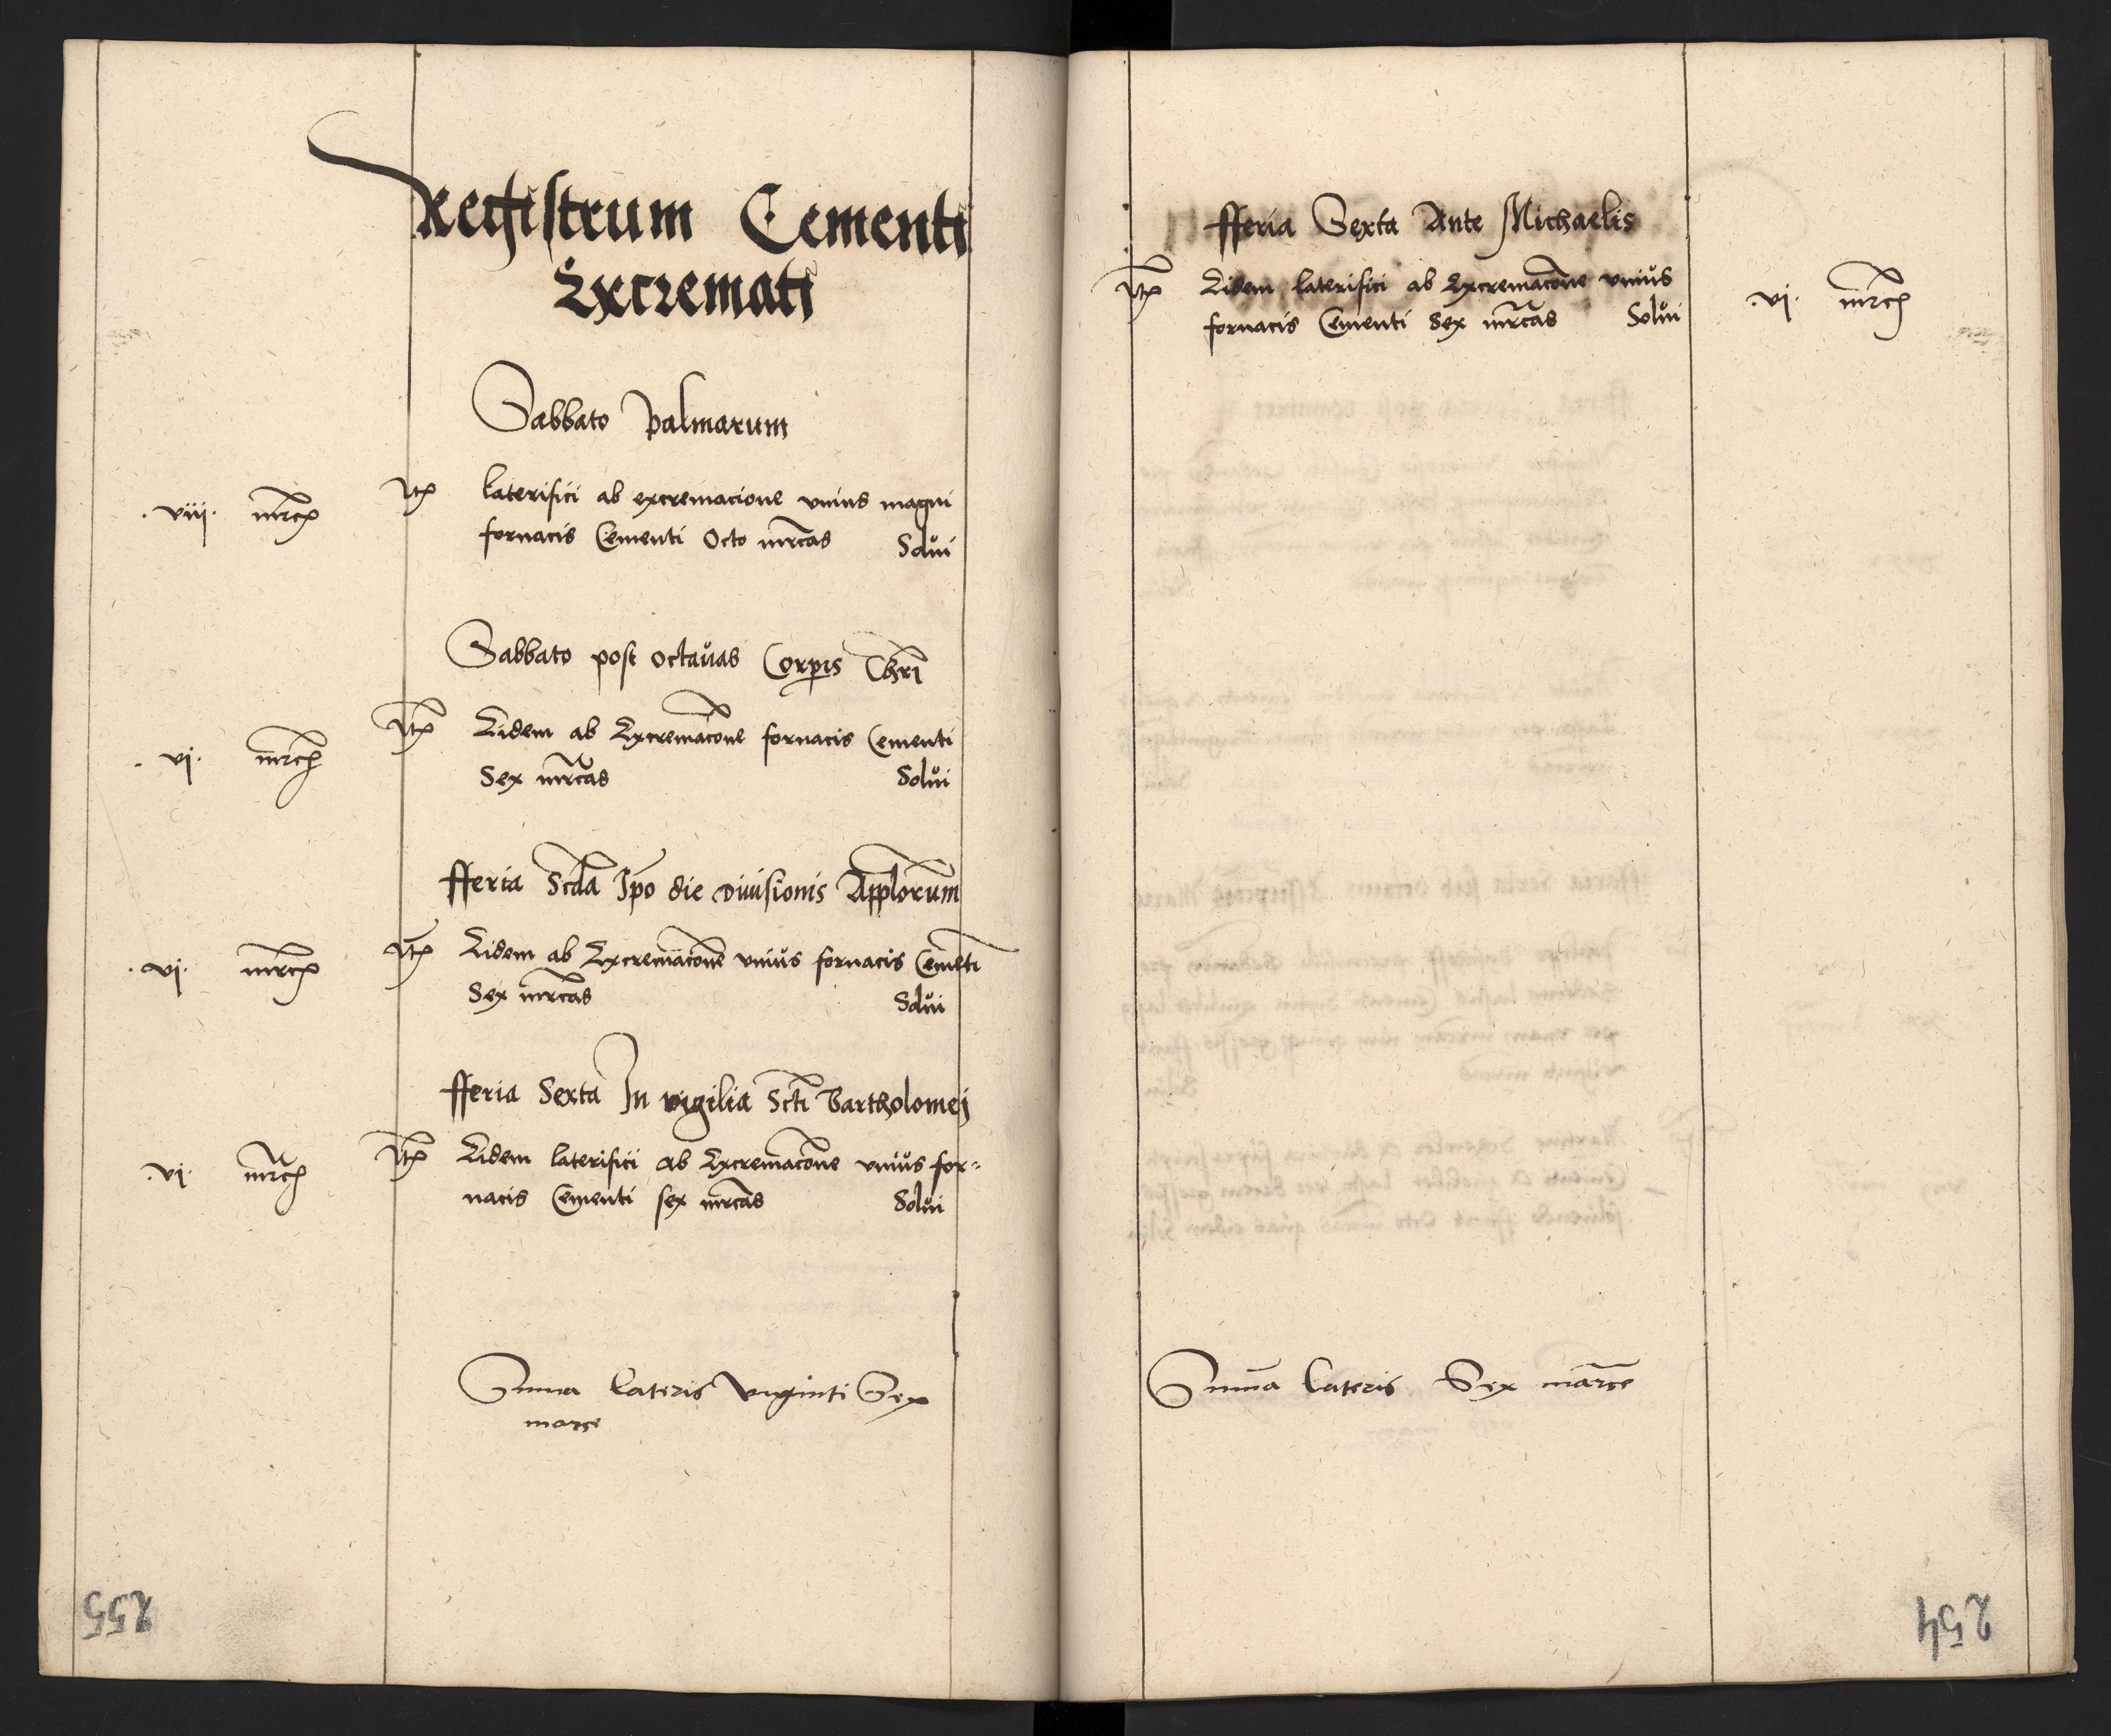 Registrum Cementi
Excremati
Sabbato palmarum
.viij. mrcę Itę laterifici ab excremacione vnius magni
fornacis Cementi Octo mrcas Solui
Sabbato post octauas Corpis Chri
.vj. mrcę Itę Eidem ab Excremacone fornacis Cementi
Sex mrcas Solui
fferia Scda Ipo die Diuisionis Applorum
.vj. mrcę Itę Eidem ab Excremacone vnius fornacis Cemeti
Sex mrcas Solui
fferia Sexta In vigilia Scti Bartholomej
.vj. mrcę Itę Eidem laterifici ab Excremacone vnius for=
nacis Cementi sex mrcas Solui
Suma lateris viginti Sex
marce
255
fferia Sexta Ante Michaelis
Itę Eidem laterifici ab Excremacone vnius .vj. mrcę
fornacis Cementi Sex mrcas Solui
Suma lateris Sex marce
254